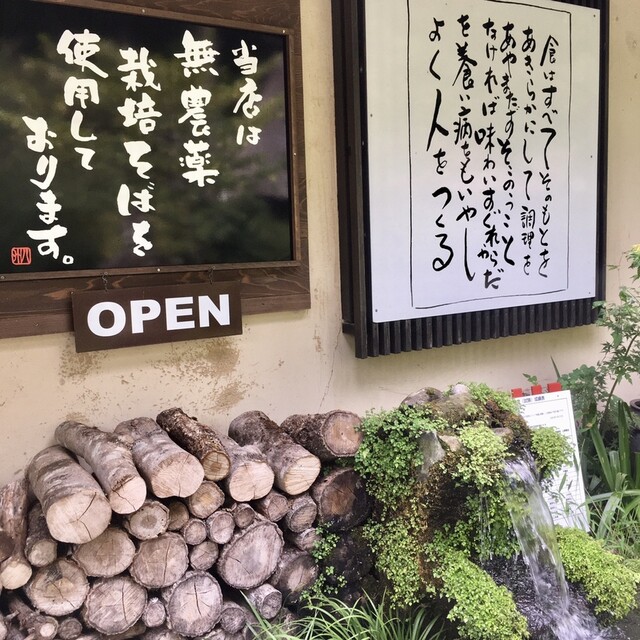 当店は
無農薬
栽培そばを
使用して
おります。
OPEN
食はすべてそのもとを
あきらかにして調理を
あやまたずそこのうこと
なければ味わいすぐれからだ
を養い病をもいやし
よく人をつくる